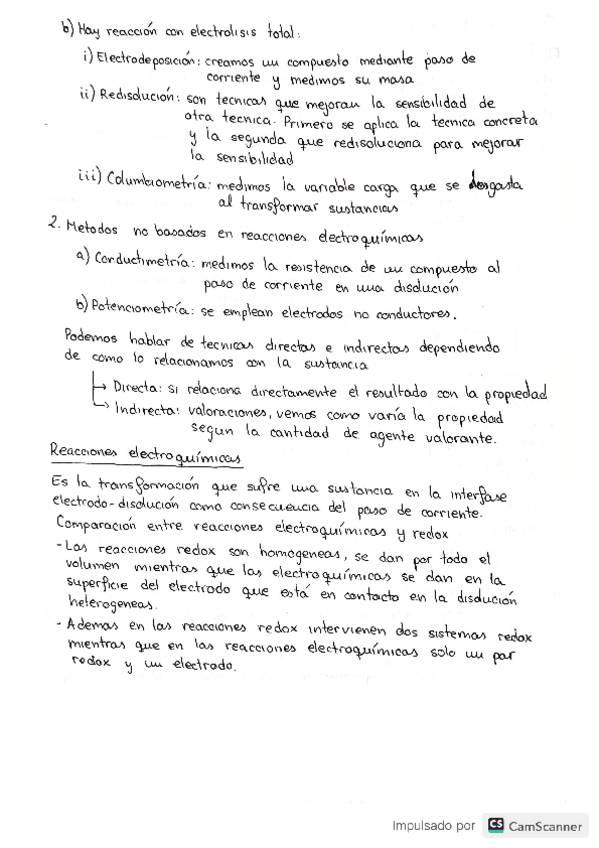 b) Hay reacción con electrolisis total:
i) Electrodeposición: creamos un compuesto mediante paso de
corriente y medimos su masa
ii) Redisolución: son tecnicas que mejoran la sensibilidad de
otra tecnica. Primero se aplica la tecnica concreta
y la segunda que redisoluciona para mejorar
la sensibilidad
iii) Columbiometría: medimos la variable carga que se desgasta
al transformar sustancias
2. Metodos no basados en reacciones electroquímicas
a) Conductimetría: medimos la resistencia de un compuesto al
paso de corriente en una disolución
b) Potenciometría: se emplean electrodos no conductores.
Podemos hablar de tecnicas directas e indirectas dependiendo
de como lo relacionamos con la sustancia
Directa: si relaciona directamente el resultado con la propiedad
Indirecta: valoraciones, vemos como varía la propiedad
segun la cantidad de agente valorante.
Reacciones electroquímicas
Es la transformación que sufre una sustancia en la interfase
electrodo-disolución como consecuencia del paso de corriente.
Comparación entre reacciones electroquímicas y redox
- Las reacciones redox son homogeneas, se dan por todo el
volumen mientras que las electroquímicas se dan en la
superficie del electrodo que está en contacto en la disolución
heterogeneas.
- Ademas en las reacciones redox intervienen dos sistemas redox
mientras que en las reacciones electroquímicas solo un par
redox y un electrodo.
Impulsado por CS CamScanner